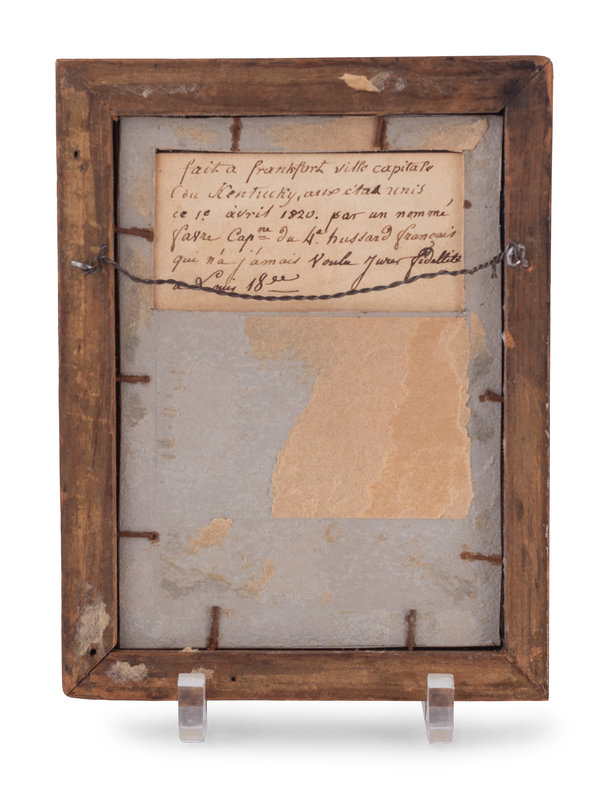 fait a frankfort ville capitale
du Kentucky, aux etas unis
ce 1.e avril 1820. par un nommé
favre Capne du 4.e hussard français
qui n'a jámais Voulu Jurer fidellité
a Louis 18ee